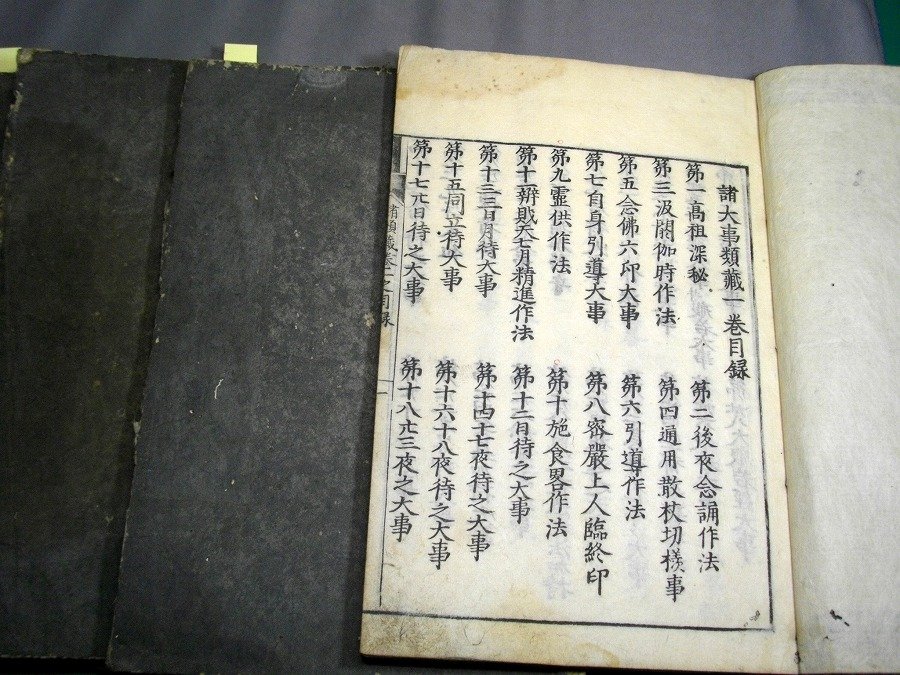 諸大事類藏一巻目録
第一高祖深秘　第二後夜念誦作法
第三汲閼伽時作法　第四通用散杖切樣事
第五念佛六印大事　第六引導作法
第七自身引導大事　第八密嚴上人臨終印
第九靈供作法　第十施食畧作法
第十一辨戝天七月精進作法　第十二日待之大事
第十三三日月待大事　第十四十七夜待之大事
第十五同立待大事　第十六十八夜待之大事
第十七元日待之大事　第十八廿三夜之大事
之目録